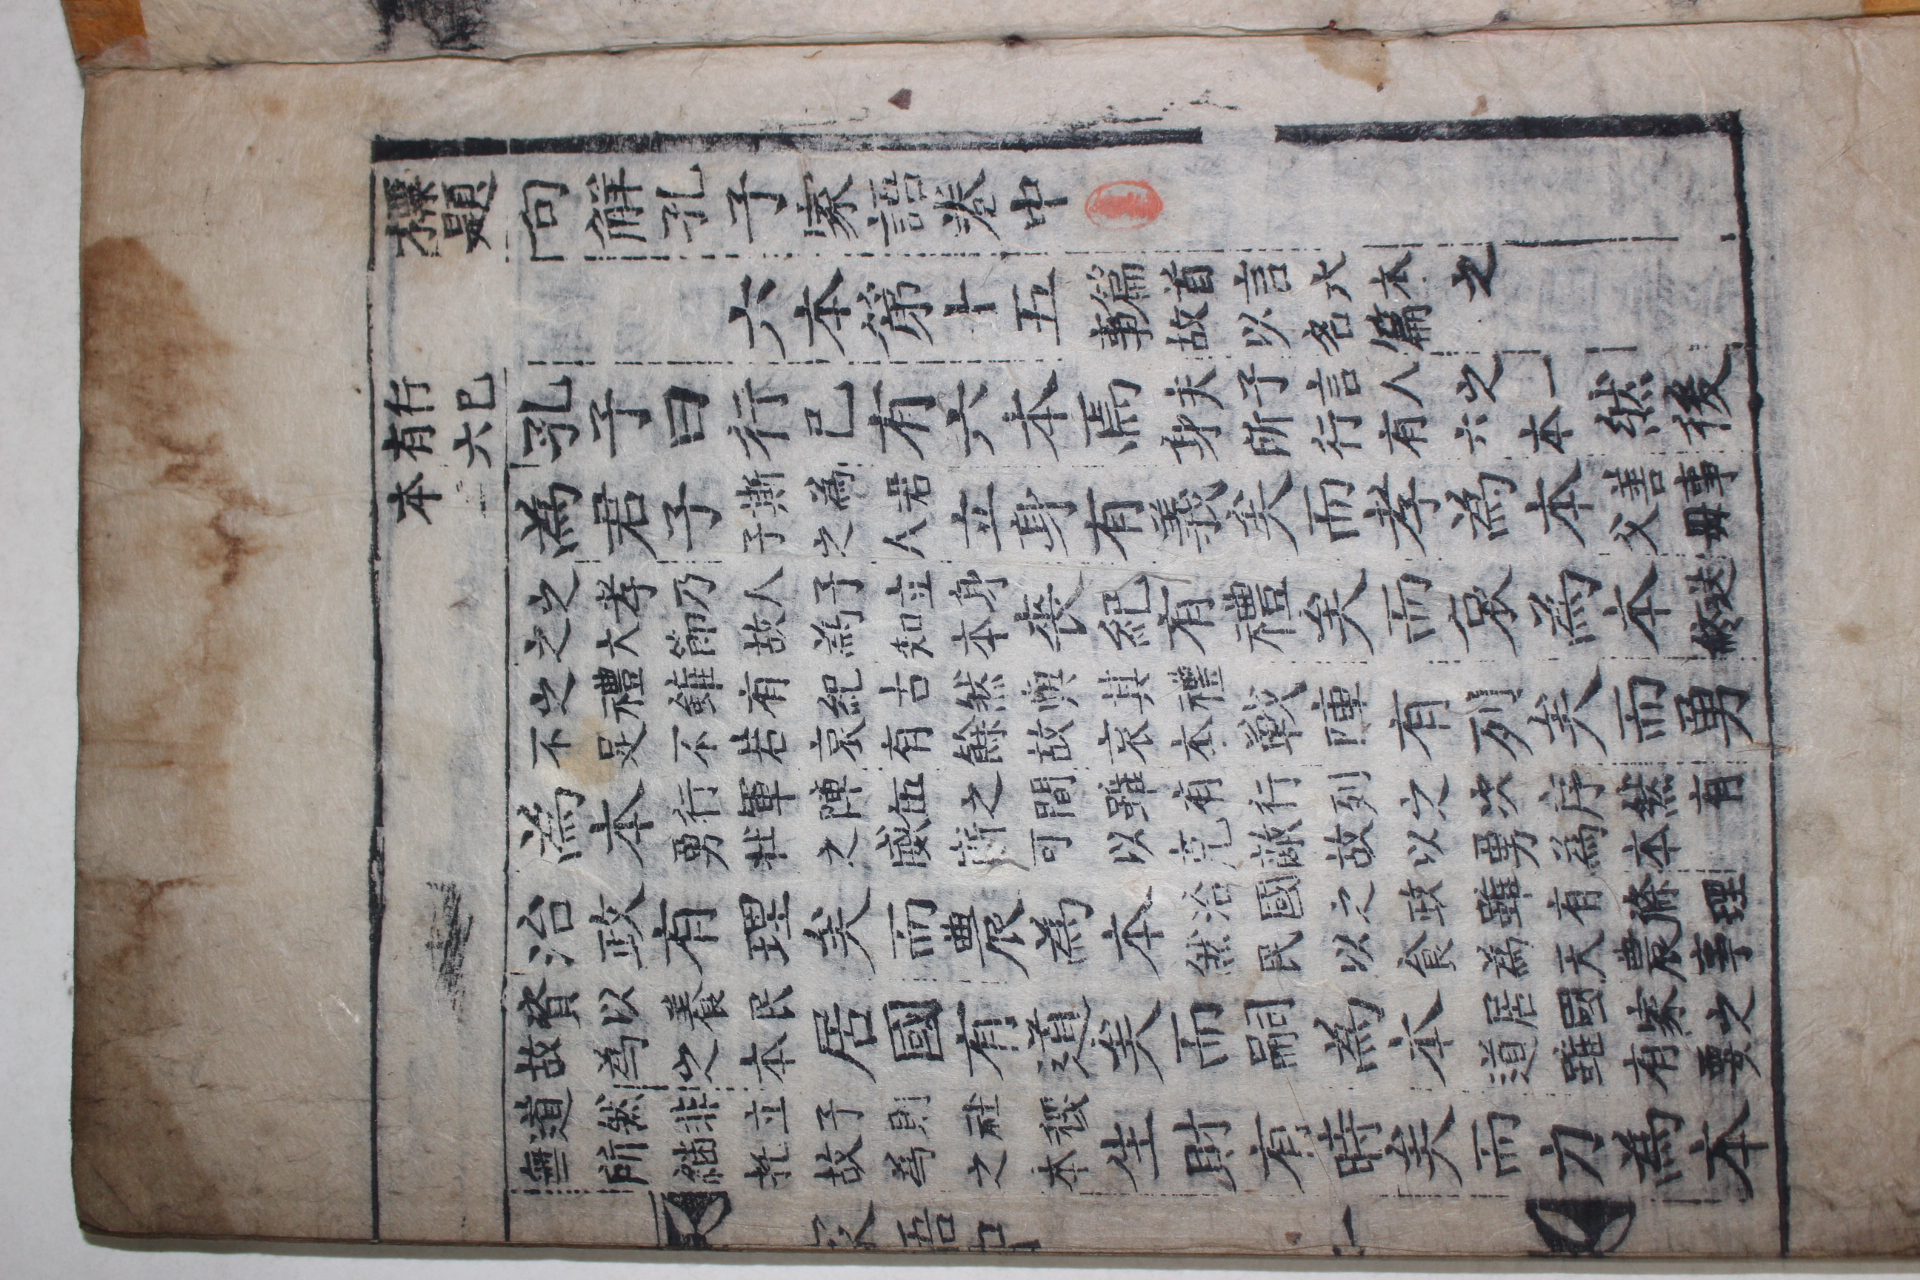 標題句解孔子家語卷中
六本第十五 篇首言六本之事故以名篇
行己有六本
孔子曰行己有六本焉 夫子言人之一身所行有六本 然後
為君子 斯為君子之人 立身有義矣而孝為本 善事父母
之孝乃人子立身之大節故為知本 喪紀有禮矣而哀為本 送終
之禮雖有紀古然與其禮不足不若哀有餘故哀本 戰陣有列矣而勇
為本 行軍陣伍之間雖有行列之次序然有勇壯之威斯可以克敵故以勇為本
治政有理矣而農為本 治國之政雖有條理然民以食為天農事
資以養民故為之本 居國有道矣而嗣為本 居國家之道雖有要
道然非立子則社稷無所繼托故為之本 生財有時矣而力為本
家語中
一